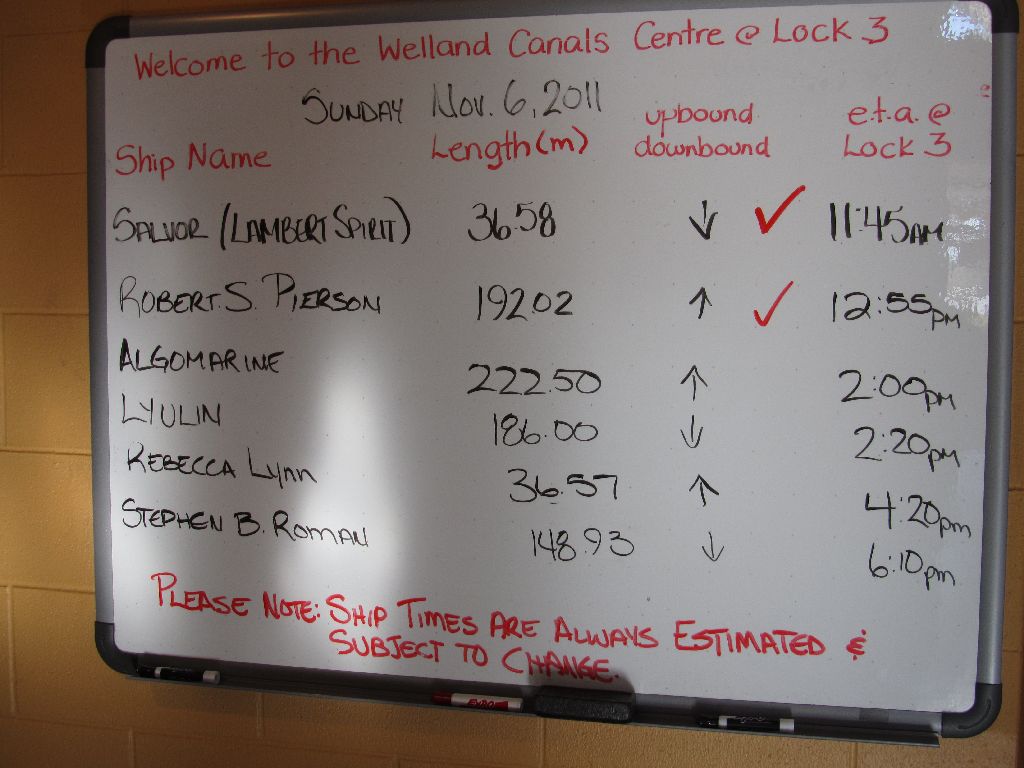 Welcome to the Welland Canals Centre @ Lock 3
Sunday Nov. 6, 2011
Ship Name Length (m) upbound downbound e.t.a. @ Lock 3
Salvor (Lambert Spirit) 36.58 ↓ ✓ 11:45am
Robert S. Pierson 192.02 ↑ ✓ 12:55pm
Algomarine 222.50 ↑ 2:00pm
Lyulin 186.00 ↓ 2:20pm
Rebecca Lynn 36.57 ↑ 4:20pm
Stephen B. Roman 148.93 ↓ 6:10pm
Please Note: Ship Times Are Always Estimated &
Subject to Change.
EXPO